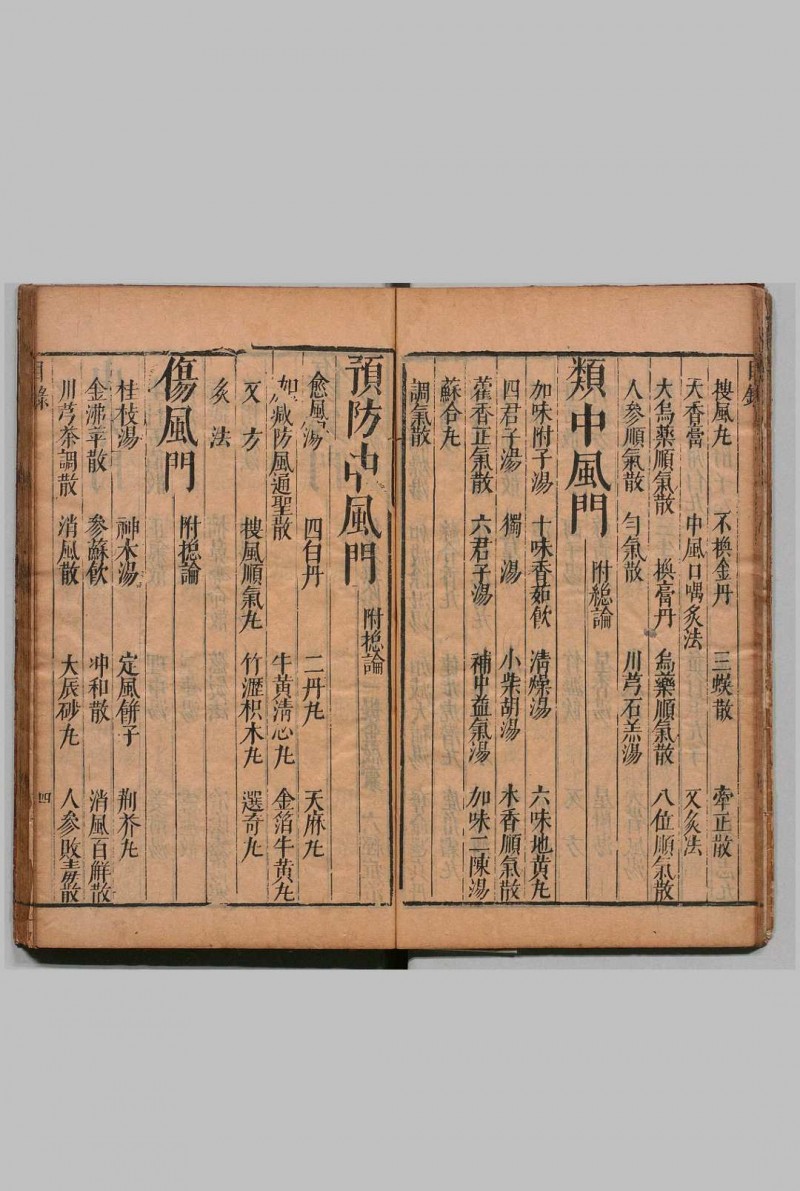 搜風丸　不換金丹　三蜈散　牽正散
天香膏　中風口喎炙法　又炙法
大烏藥順氣散　換膏丹　烏藥順氣散　八位順氣散
人參順氣散　勻氣散　川芎石羔湯
類中風門　附総論
加味附子湯　十味香茹飲　清燥湯　六味地黃丸
四君子湯　獨湯　小柴胡湯　木香順氣散
藿香正氣散　六君子湯　補中益氣湯　加味二陳湯
蘇合丸
調氣散
預防中風門　附揔論
愈風湯　四白丹　二丹丸　天麻丸
加減防風通聖散　牛黃清心丸　金箔牛黃丸
又方　搜風順氣丸　竹瀝枳木丸　選奇丸
炙法
傷風門　附揔論
桂枝湯　神木湯　定風餅子　荊芥丸
金沸草散　參蘇飲　冲和散　消風百解散
川芎茶調散　消風散　大辰砂丸　人參敗毒散
目錄　四